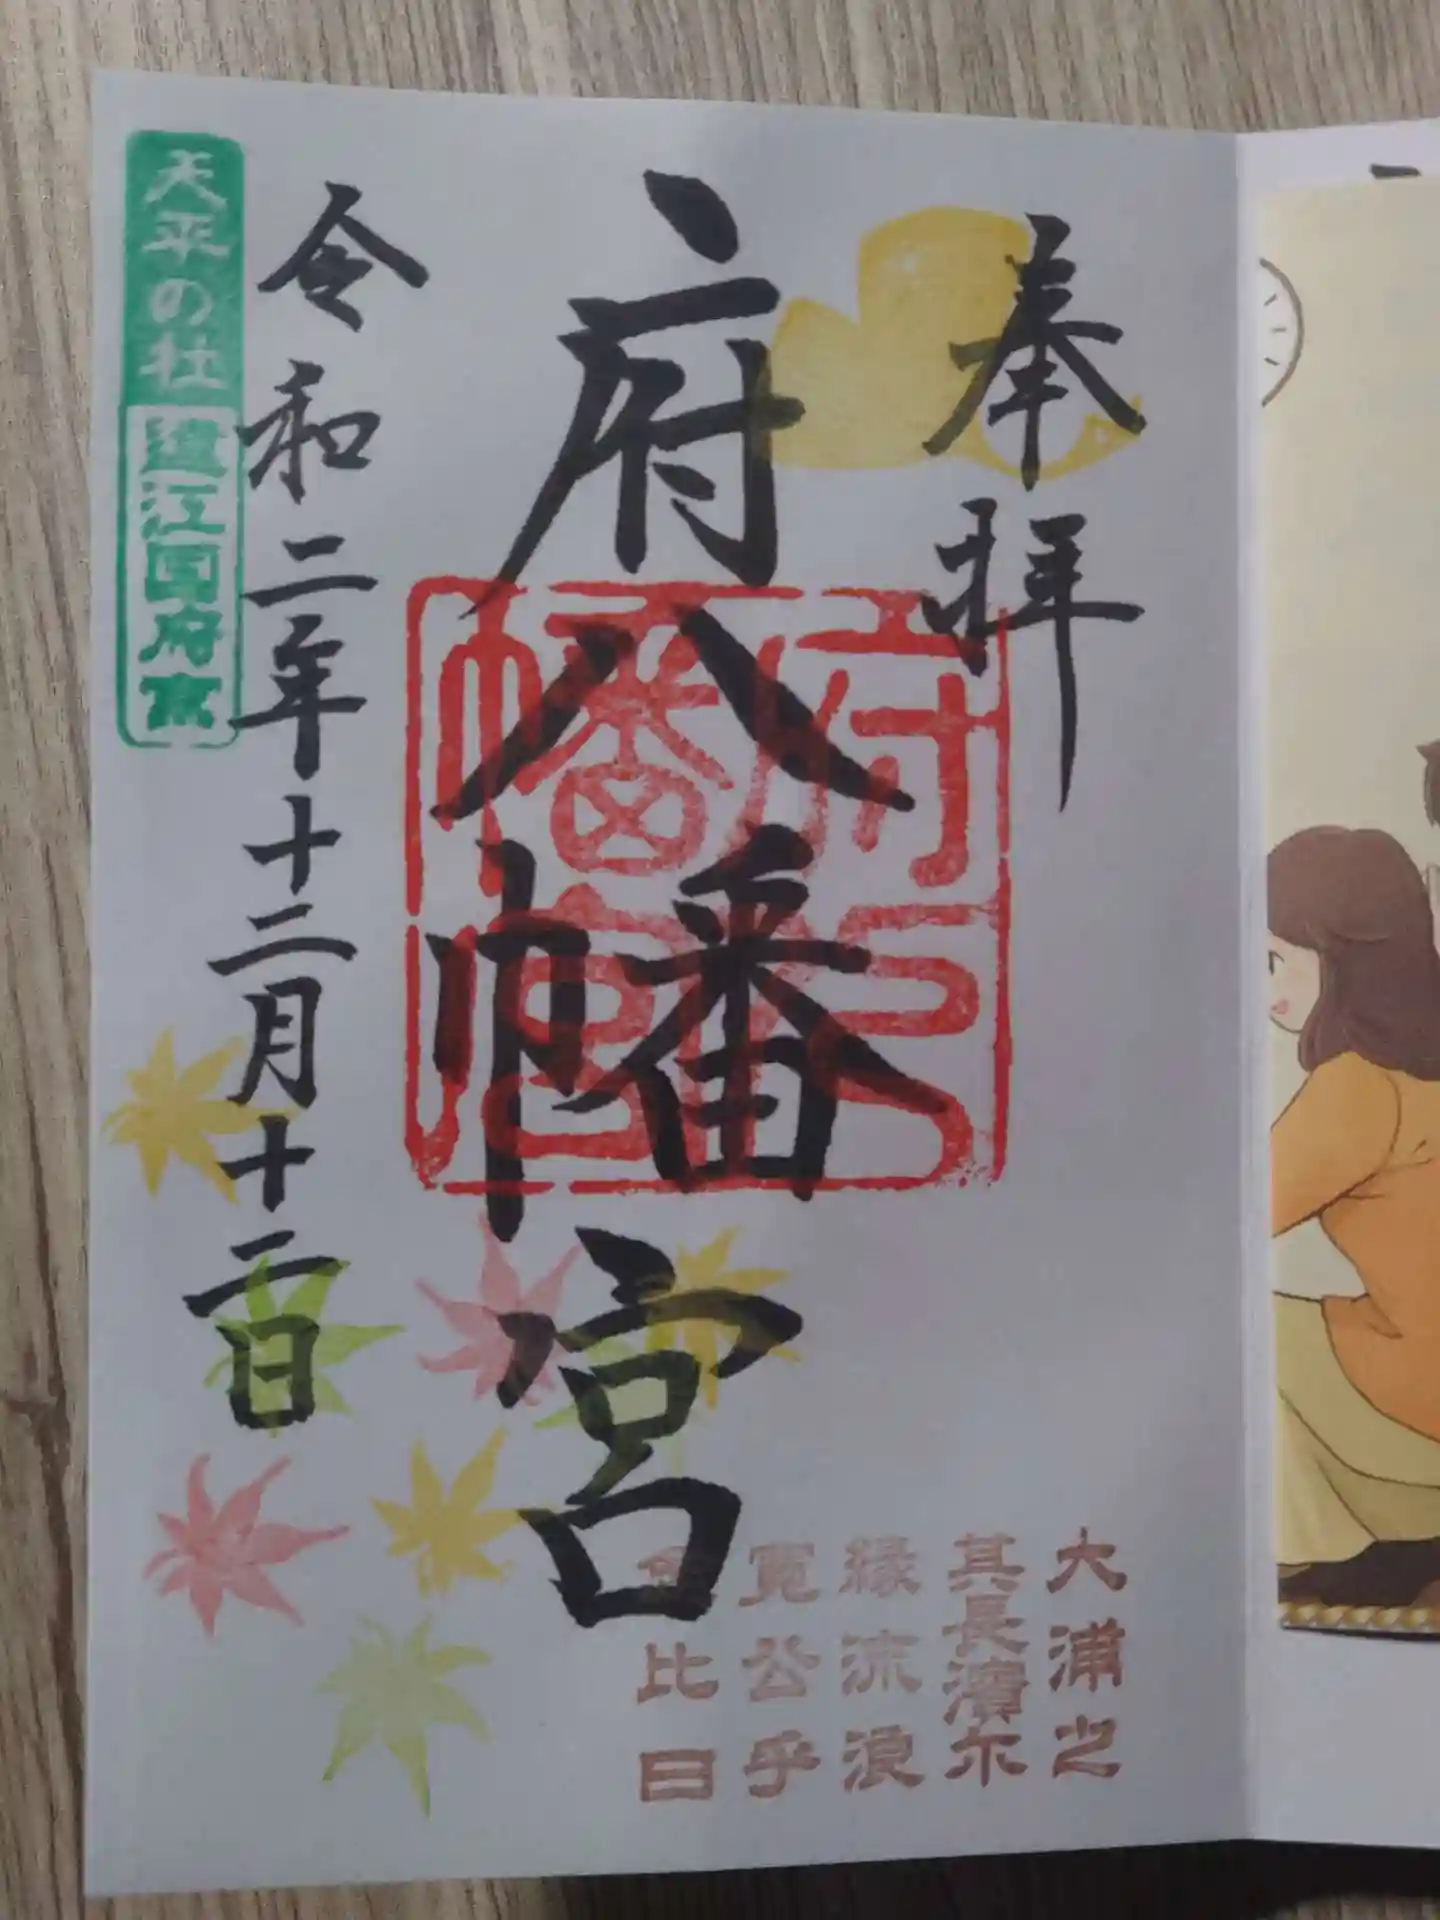 奉拝
府八幡宮
令和二年十二月十二日
天平の杜
遠江国府宮
府八幡宮
大浦之
其長濱尓
縁流浪
寛公乎
比日